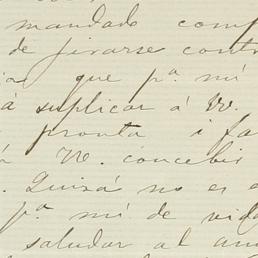 mandado comp
de firarse contr
que pª. mí
á suplicar á W.
pronta i fa
W. concebis
. Quizá no es e
pª. mí de vida
saludar al am